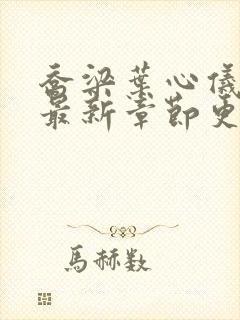 乔梁葉心儀
最新章節更
馬赫数